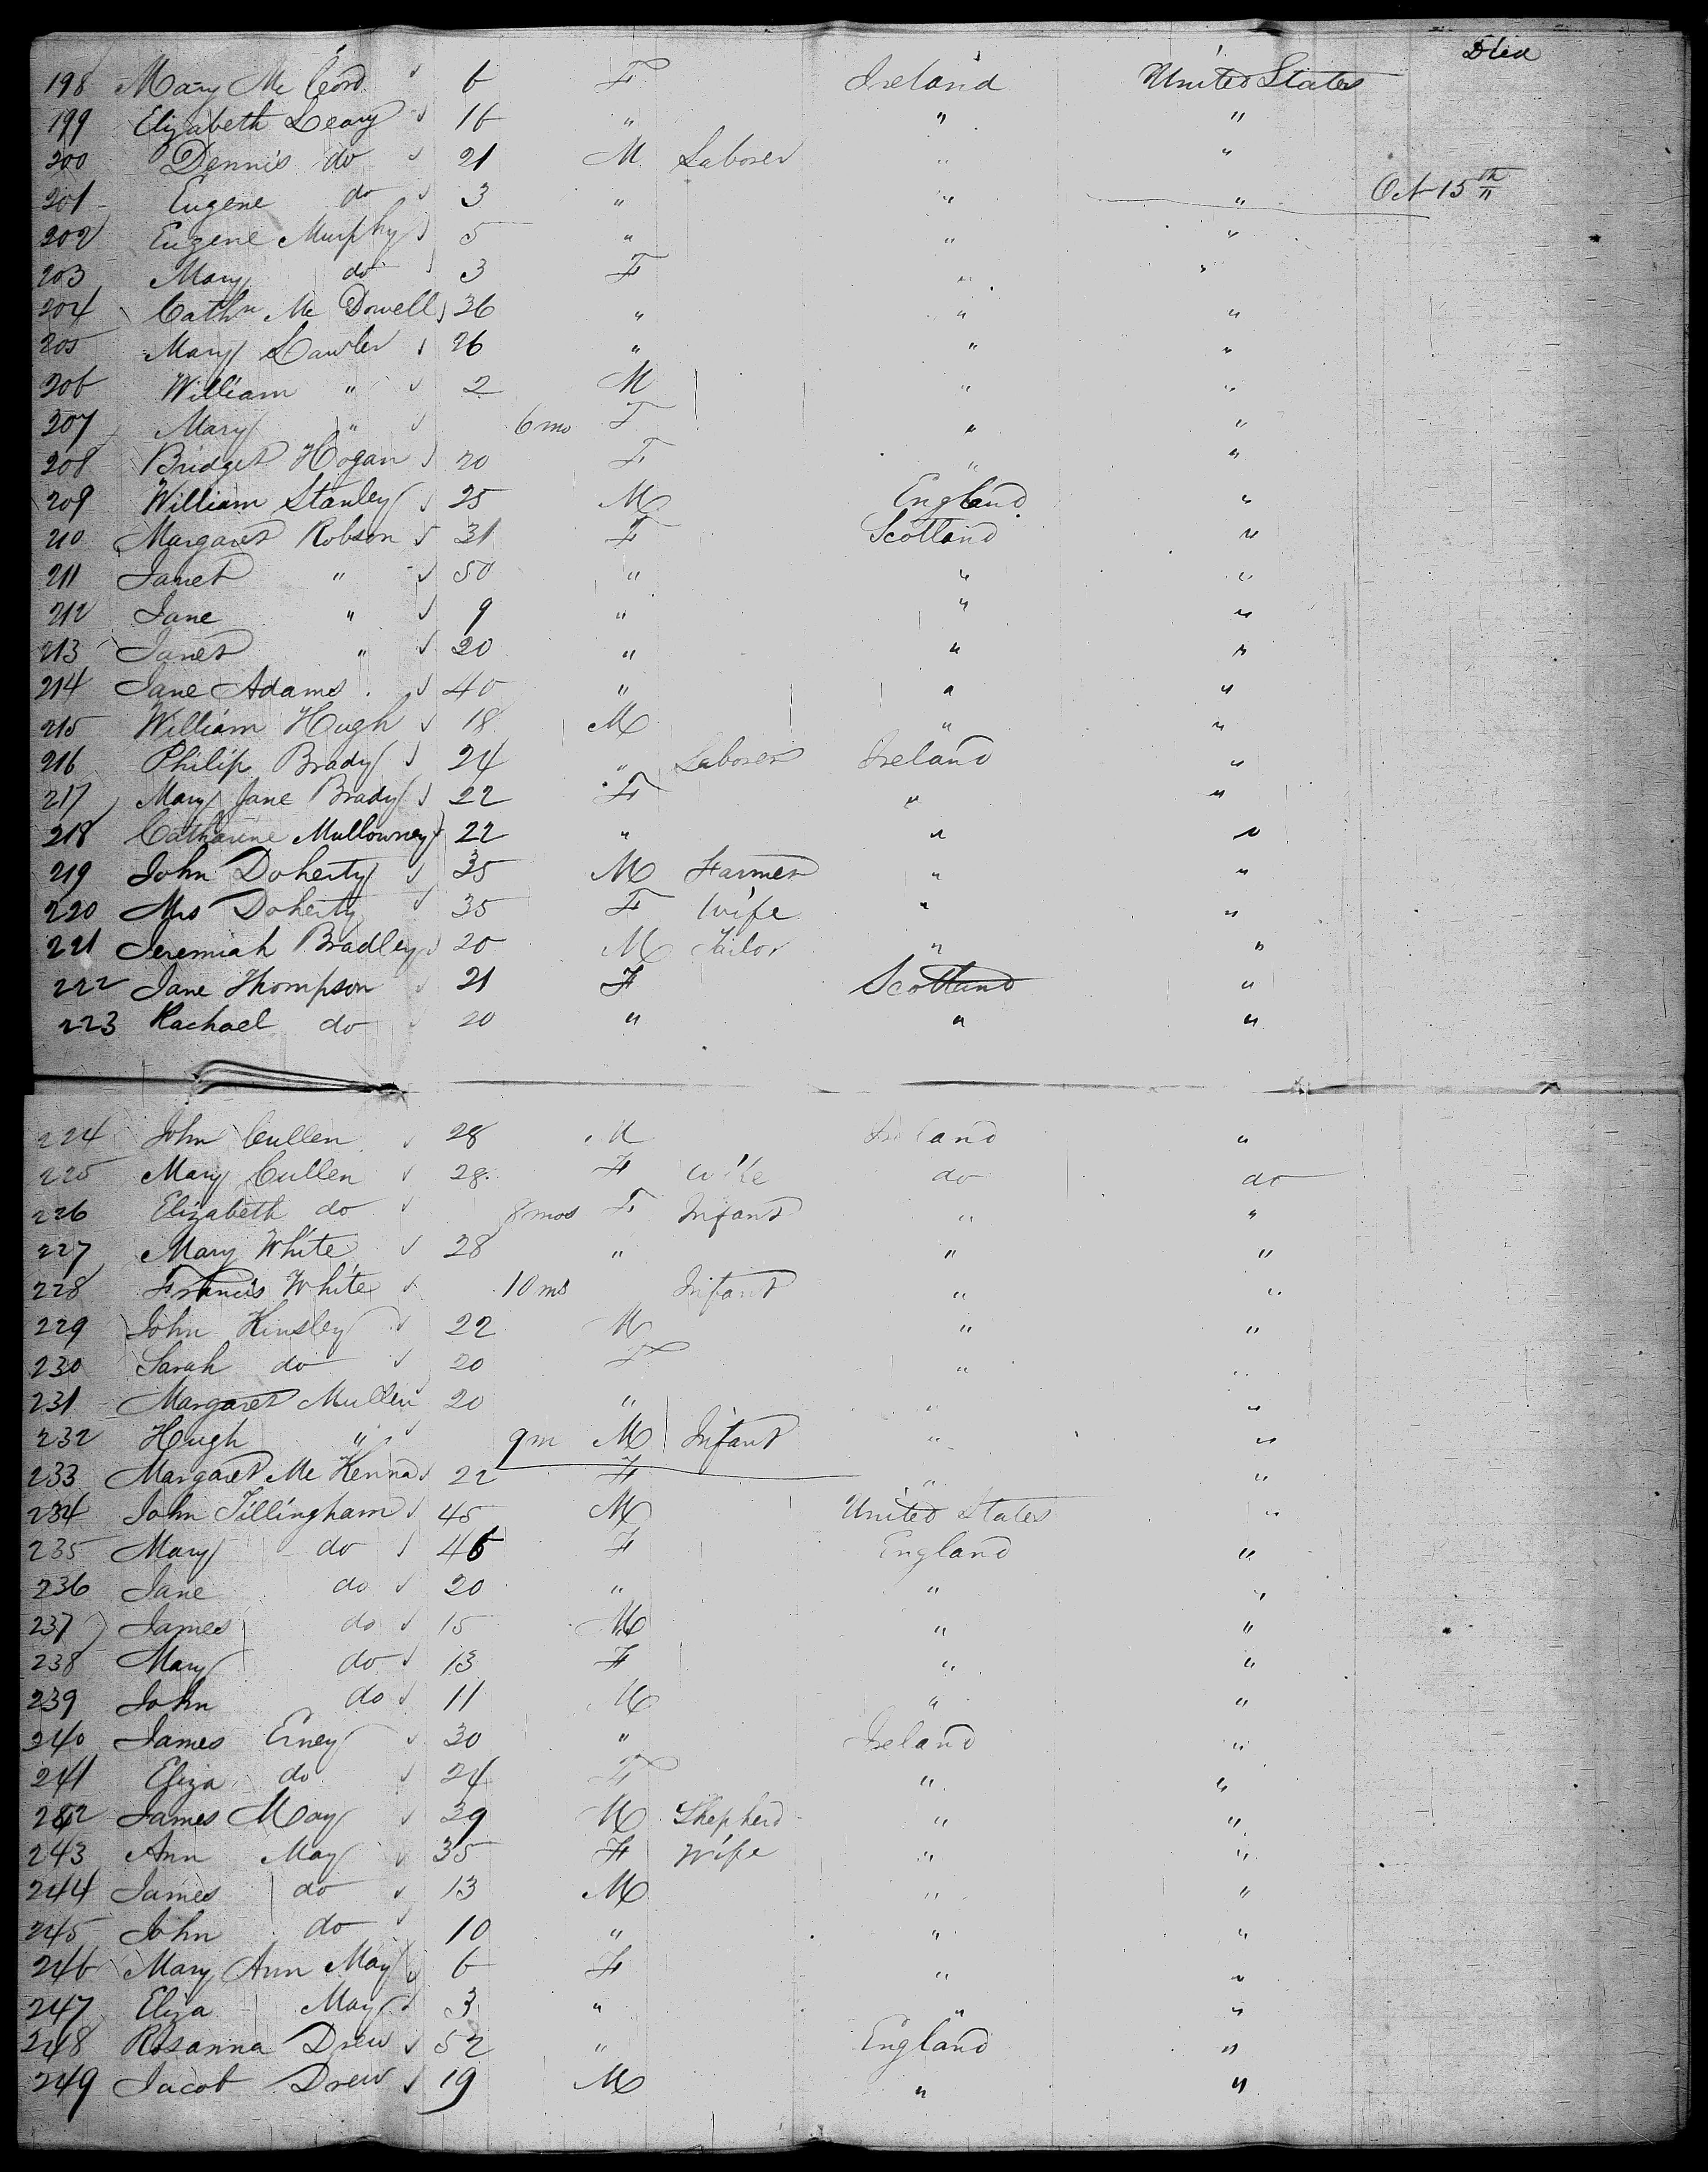 Died
198 Mary Mc Cord 6 F Ireland United States
199 Elizabeth Leary 16 " " "
200 Dennis do 21 M Laborer " "
201 Eugene do 3 " " " Oct 15th
202 Eugene Murphy 5 " " "
203 Mary do 3 F " "
204 Cathn Mc Dowell 36 " " "
205 Mary Lawler 26 " " "
206 William " 2 M " "
207 Mary " 6 mo F " "
208 Bridget Hogan 20 F " "
209 William Stanley 25 M England "
210 Margaret Robson 31 F Scotland "
211 Janet " 50 " " "
212 Jane " 9 " " "
213 Janet " 20 " " "
214 Jane Adams 40 " " "
215 William Hugh 18 M " "
216 Philip Brady 24 " Laborer Ireland "
217 Mary Jane Brady 22 F " "
218 Catharine Mullowney 22 " " "
219 John Doherty 35 M Farmer " "
220 Mrs Doherty 35 F Wife " "
221 Jeremiah Bradley 20 M Tailor " "
222 Jane Thompson 21 F Scotland "
223 Rachael do 20 " " "
224 John Cullen 28 M Ireland "
225 Mary Cullen 28 F Wife do do
226 Elizabeth do 8 mos F Infant " "
227 Mary White 28 " " "
228 Francis White 10 ms Infant " "
229 John Kinsley 22 M " "
230 Sarah do 20 F " "
231 Margaret Mullen 20 " " "
232 Hugh " 9 m M Infant " "
233 Margaret Mc Kenna 22 F " "
234 John Tillingham 45 M United States "
235 Mary do 46 F England "
236 Jane do 20 " " "
237 James do 15 M " "
238 Mary do 13 F " "
239 John do 11 M " "
240 James Erney 30 " Ireland "
241 Eliza do 24 F " "
242 James May 39 M Shepherd " "
243 Ann May 35 F Wife " "
244 James do 13 M " "
245 John do 10 " " "
246 Mary Ann May 6 F " "
247 Eliza May 3 " " "
248 Rosanna Drew 52 " England "
249 Jacob Drew 19 M " "